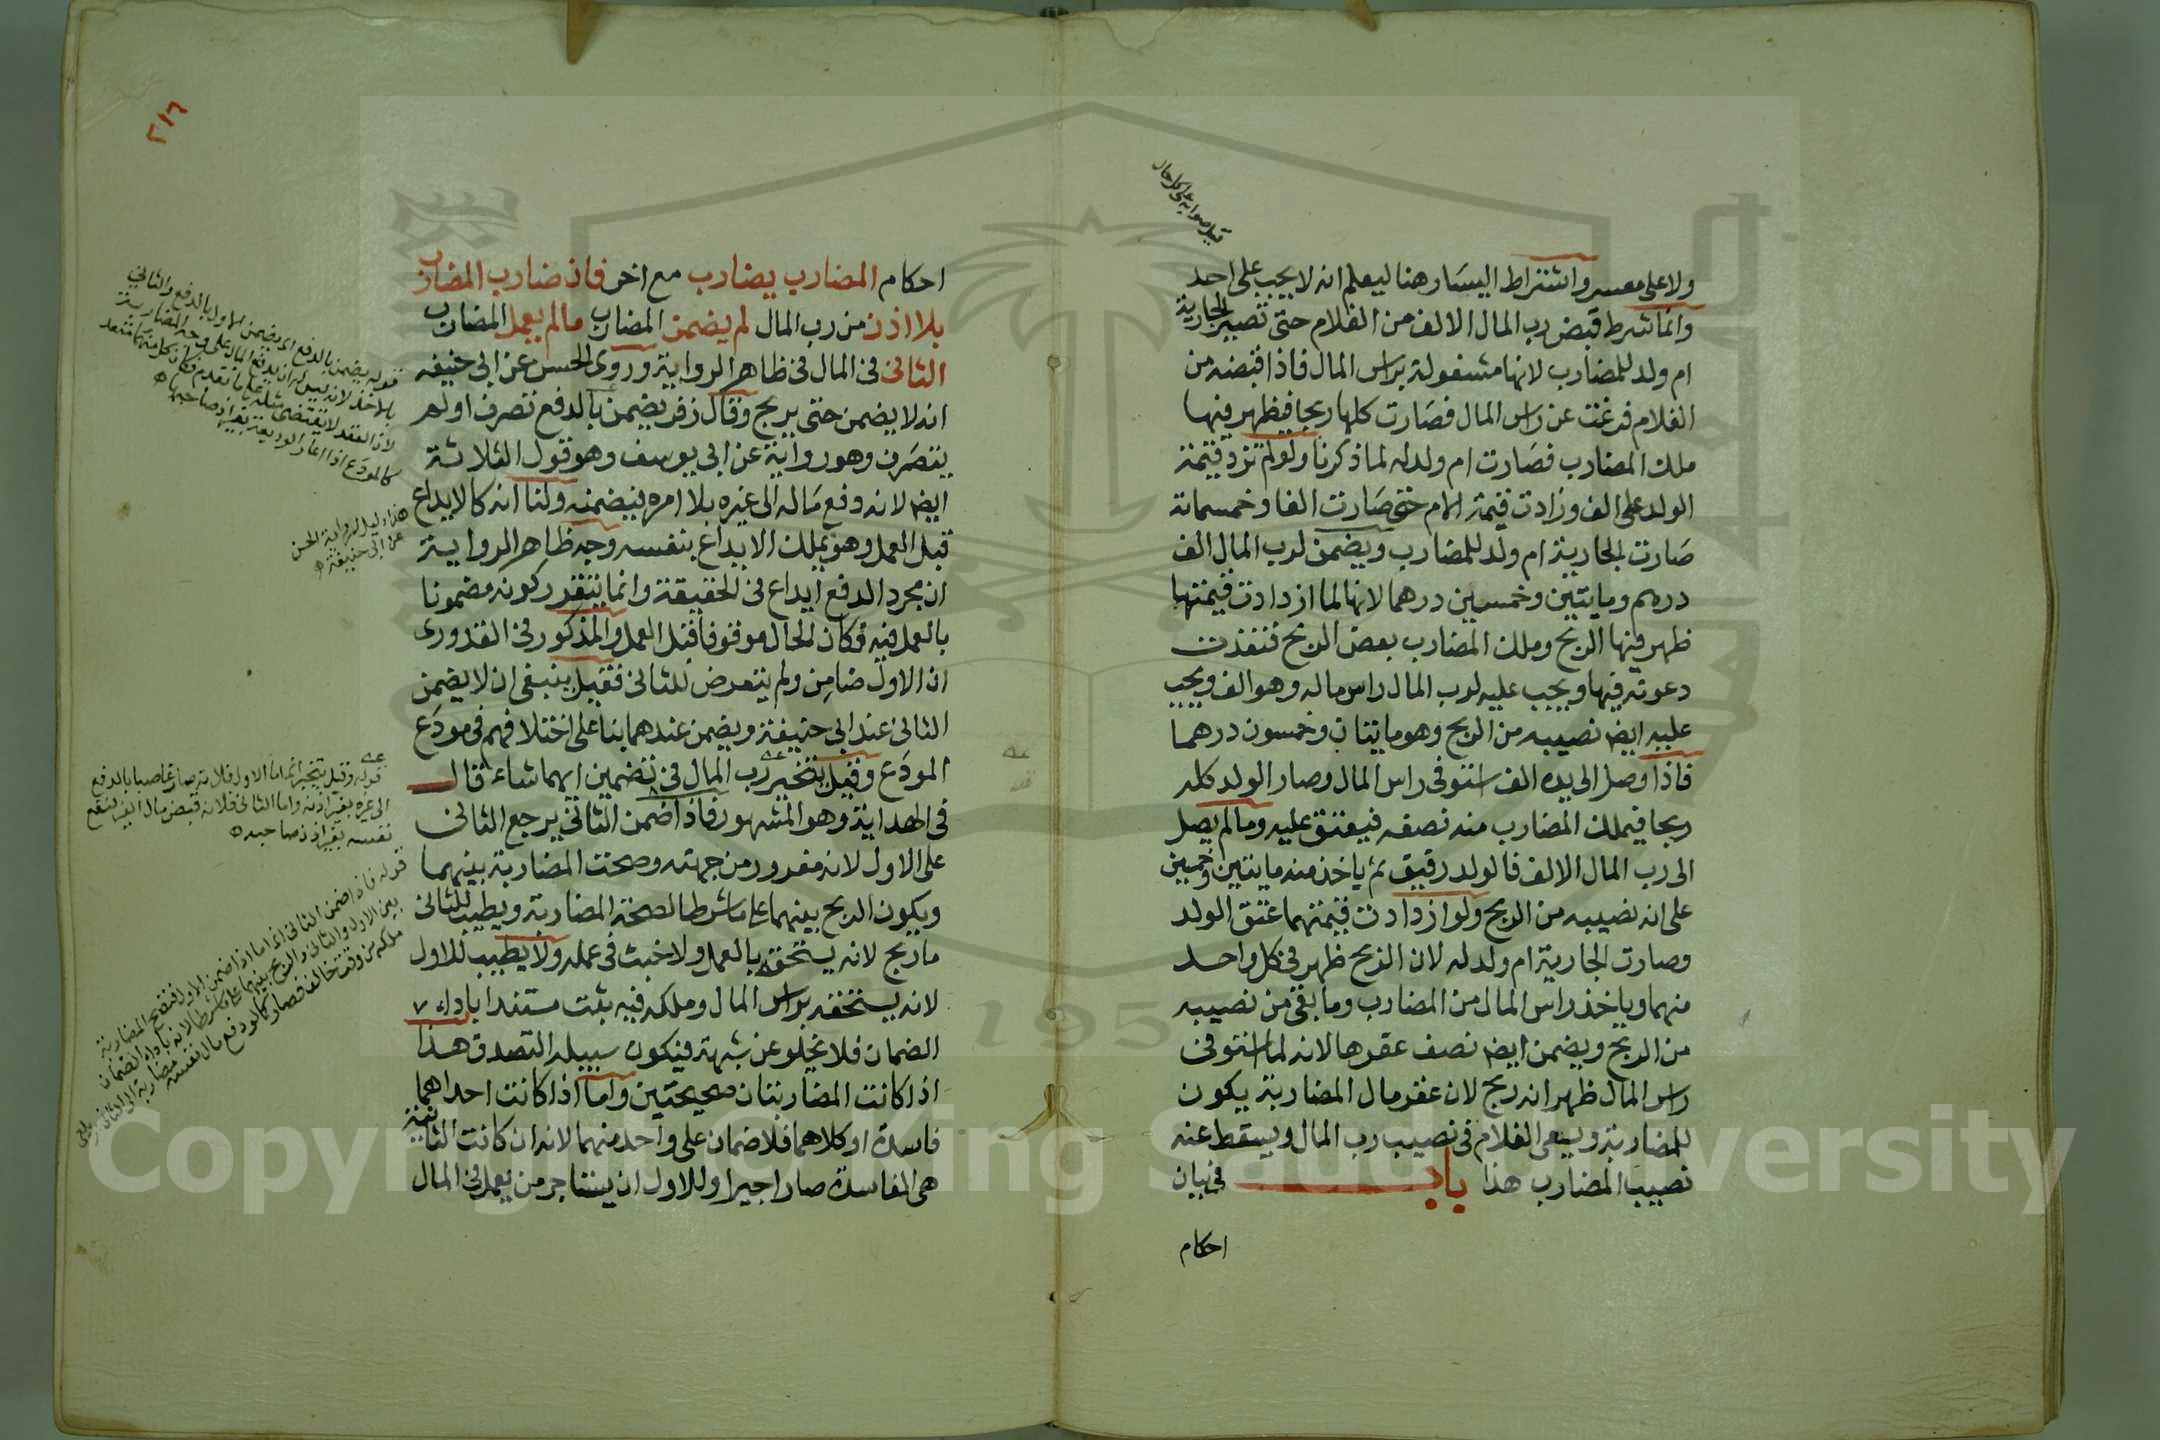 ولا على معسر واشتراط اليسار هنا ليعلم انه لا يجب على احد
وانما شرط قبض رب المال الالف من الغلام حتى تصير الجارية
ام ولد للمضارب لانها مشغولة براس المال فاذا قبضه من
الغلام فرغت عن راس المال فصارت كلها ربحا فيظهر فيها
ملك المضارب فصارت ام ولد له لما ذكرنا ولو لم تزد قيمة
الولد على الف وزادت قيمة الام حتى صارت الفا وخمسماته
صارت الجارية ام ولد للمضارب ويضمن لرب المال الف
درهم ومايتين وخمسين درهما لانها لما ازدادت قيمتها
ظهر فيها الربح وملك المضارب بعض الربح فنفذت
دعوته فيها ويجب عليه لرب المال راس ماله وهو الف ويجب
عليه ايض نصيبه من الربح وهو مايتان وخمسون درهما
فاذا وصل الى يده الف استوفى راس المال وصار الولد كله
ربحا فيملك المضارب منه نصفه فيعتق عليه وما لم يصل
الى رب المال الالف فالولد رقيق ثم ياخذ منه مايتين وخمسين
على انه نصيبه من الربح ولو ازدادت قيمتهما عتق الولد
وصارت الجارية ام ولد له لان الربح ظهر فى كل واحد
منهما وياخذ راس المال من المضارب وما بقى من نصيبه
من الربح ويضمن ايض نصف عقرها لانه لما استوفى
راس المال ظهر انه ربح لان عقر مال المضاربة يكون
للمضاربة ويسعى الغلام فى نصيب رب المال ويسقط عنه
نصيب المضارب هذا باب فى بيان
احكام
٢١٦
احكام المضارب يضارب مع اخر فان ضارب المضارب
بلا اذن من رب المال لم يضمن المضارب مالم يعمل المضارب
الثانى فى المال فى ظاهر الرواية وروى الحسن عن ابى حنيفه
انه لا يضمن حتى يربح وقال زفر يضمن بالدفع تصرف او لم
يتصرف وهو رواية عن ابى يوسف وهو قول الثلاثة
ايض لانه دفع ماله الى غيره بلا امره فيضمنه ولنا انه كالايداع
قبل العمل وهو يملك الايداع بنفسه وجه ظاهر الرواية
ان مجرد الدفع ايداع فى الحقيقة وانما يتقرر كونه مضمونا
بالعمل فيه فكان الحال موقوفا قبل العمل والمذكور فى القدورى
ان الاول ضامن ولم يتعرض للثانى فقيل ينبغى ان لا يضمن
الثانى عند ابى حنيفة ويضمن عندهما بناء على اختلافهم فى مودع
المودع وقيل يتخير رب المال فى تضمين ايهما شاء قال
فى الهداية وهو المشهور فاذا ضمن الثانى يرجع الثانى
على الاول لانه مغرور من جهته وصحت المضاربة بينهما
ويكون الربح بينهما على ما شرطا لصحة المضاربة ويطيب للثانى
ما ربح لانه يستحقه بالعمل ولا خبث فى عمله ولا يطيب للاول
لانه يستحقه براس المال وملكه فيه يثبت مستندا باداء
الضمان فلا يخلو عن شبهة فيكون سبيله التصدق هذا
اذا كانت المضاربتان صحيحتين واما اذا كانت احداهما
فاسدة او كلاهما فلا ضمان على واحد منهما لانه ان كانت الثانية
هى الفاسدة صار اجيرا وللاول ان يستاجر من يعمل فى المال
هذا دليل لرواية الحسن
عن ابى حنيفة
قوله وقيل يتخير اما الاول فلانه صار غاصبا بالدفع
الى غيره بغير اذنه واما الثانى فلانه قبض مال الغير لنفع
نفسه بغير اذن صاحبه
Copyright © King Saud University
1957